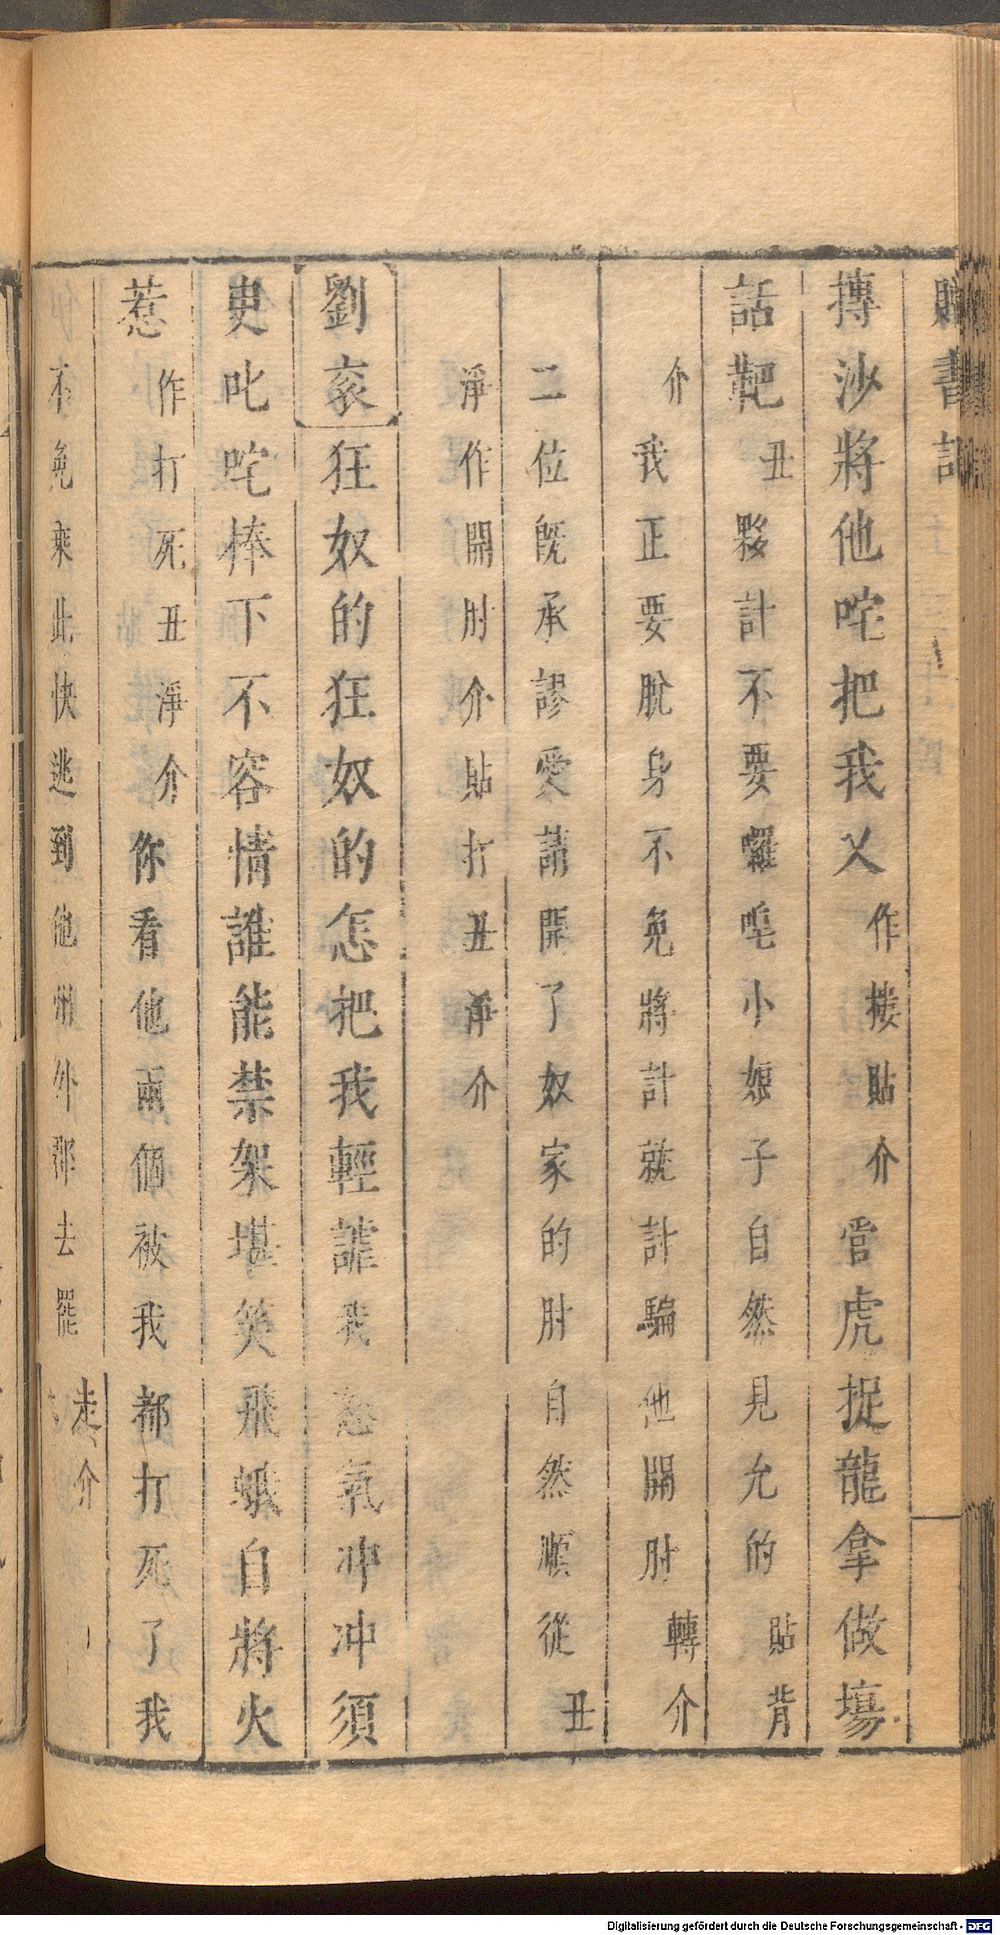 書記
摶沙將他咤把我乂作摟貼介當虎捉龍拿做塲
話靶丑夥計不要囉唣小娘子自然見允的貼背
介我正要脫身不免將計就計騙他開肘轉介
二位旣承謬愛請開了奴家的肘自然順從丑
淨作開肘介貼打丑淨介
劉袞狂奴的狂奴的怎把我輕䛕我怒氣冲冲須
叱咤棒下不容情誰能禁架堪笑飛蛾自將火
惹作打死丑淨介你看他兩個被我都打死了我
不免乘此快逃到他州外郡去罷走介
Digitalisierung gefördert durch die Deutsche Forschungsgemeinschaft - DFG